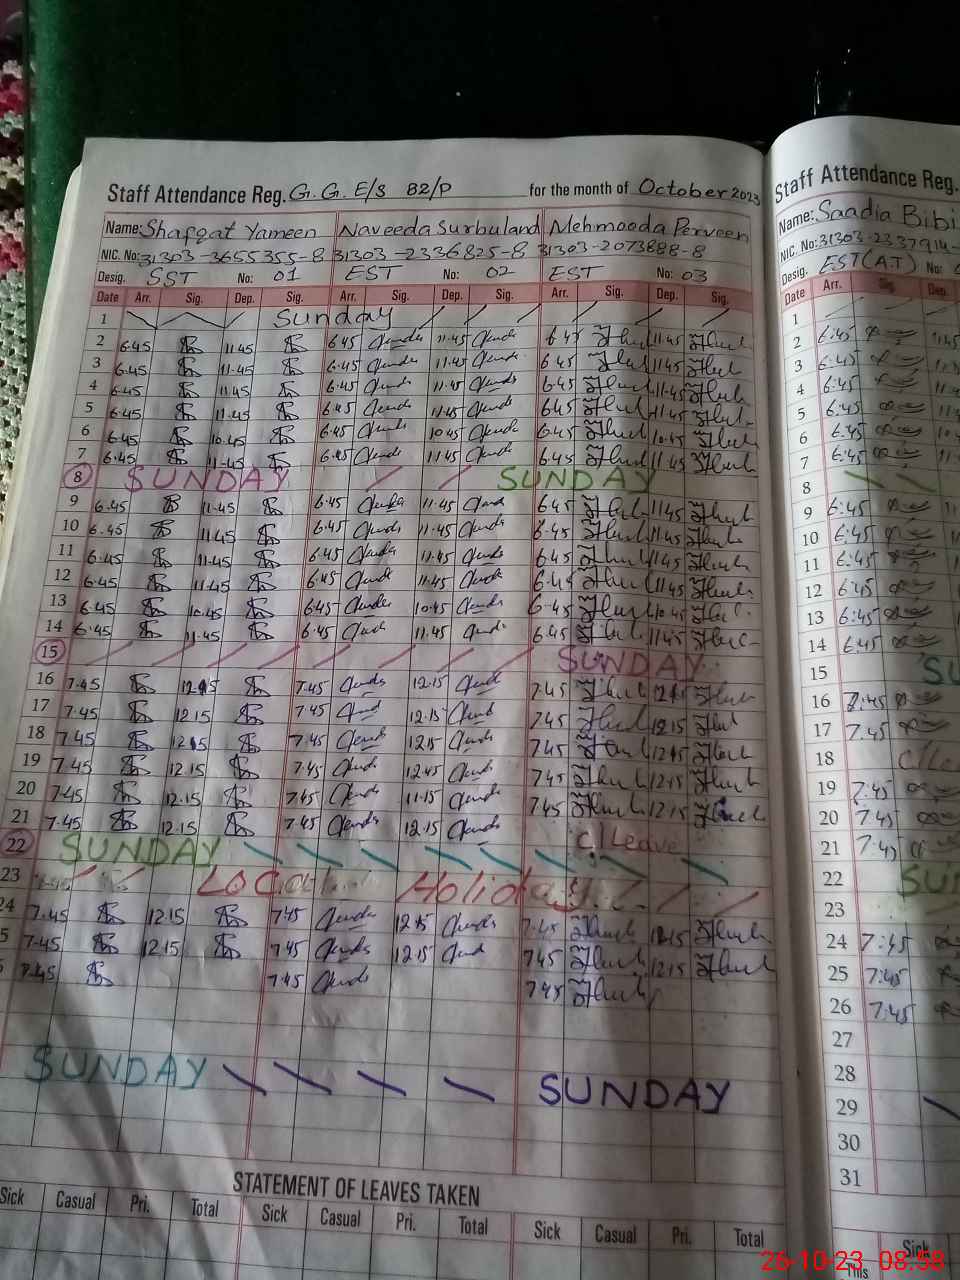 Staff Attendance Reg. G.G. E/S 82/P for the month of October 2023
Name: Shafqat Yameen Naveeda Surbuland Mehmooda Perveen
NIC. No: 31303-3655355-8 31303-2336825-8 31303-2073888-8
Desig. SST No: 01 EST No: 02 EST No: 03
Date Arr. Sig. Dep. Sig. Arr. Sig. Dep. Sig. Arr. Sig. Dep. Sig.
1 Sunday
2 6.45 11.45 6.45 11.45 6.45 11.45
3 6.45 11.45 6.45 11.45 6.45 11.45
4 6.45 11.45 6.45 11.45 6.45 11.45
5 6.45 11.45 6.45 11.45 6.45 11.45
6 6.45 10.45 6.45 10.45 6.45 10.45
7 6.45 11.45 6.45 11.45 6.45 11.45
8 SUNDAY SUNDAY
9 6.45 11.45 6.45 11.45 6.45 11.45
10 6.45 11.45 6.45 11.45 6.45 11.45
11 6.45 11.45 6.45 11.45 6.45 11.45
12 6.45 11.45 6.45 11.45 6.45 11.45
13 6.45 10.45 6.45 10.45 6.45 10.45
14 6.45 11.45 6.45 11.45 6.45 11.45
15 SUNDAY
16 7.45 12.15 7.45 12.15 7.45 12.15
17 7.45 12.15 7.45 12.15 7.45 12.15
18 7.45 12.15 7.45 12.15 7.45 12.15
19 7.45 12.15 7.45 12.45 7.45 12.15
20 7.45 12.15 7.45 11.15 7.45 12.15
21 7.45 12.15 7.45 12.15 C/Leave
22 SUNDAY
23 Local Holiday
24 7.45 12.15 7.45 12.15 7.45 12.15
5 7.45 12.15 7.45 12.15 7.45 12.15
7.45 7.45 7.45
SUNDAY SUNDAY
STATEMENT OF LEAVES TAKEN
Sick Casual Pri. Total Sick Casual Pri. Total Sick Casual Pri. Total
Staff Attendance Reg.
Name: Saadia Bibi
NIC. No: 31303-2337914-
Desig. EST (A.T) No:
Date Arr. Sig. Dep.
1
2 6:45 11:45
3 6:45
4 6:45
5 6:45
6 6:45
7 6:45
8
9 6:45
10 6:45
11 6:45
12 6:45
13 6:45
14 6:45
15 SU
16 7:45
17 7:45
18 C/Lea
19 7:45
20 7:45
21 7:45
22 SU
23
24 7:45
25 7:45
26 7:45
27
28
29
30
31
Sick
This
26-10-23 08:58